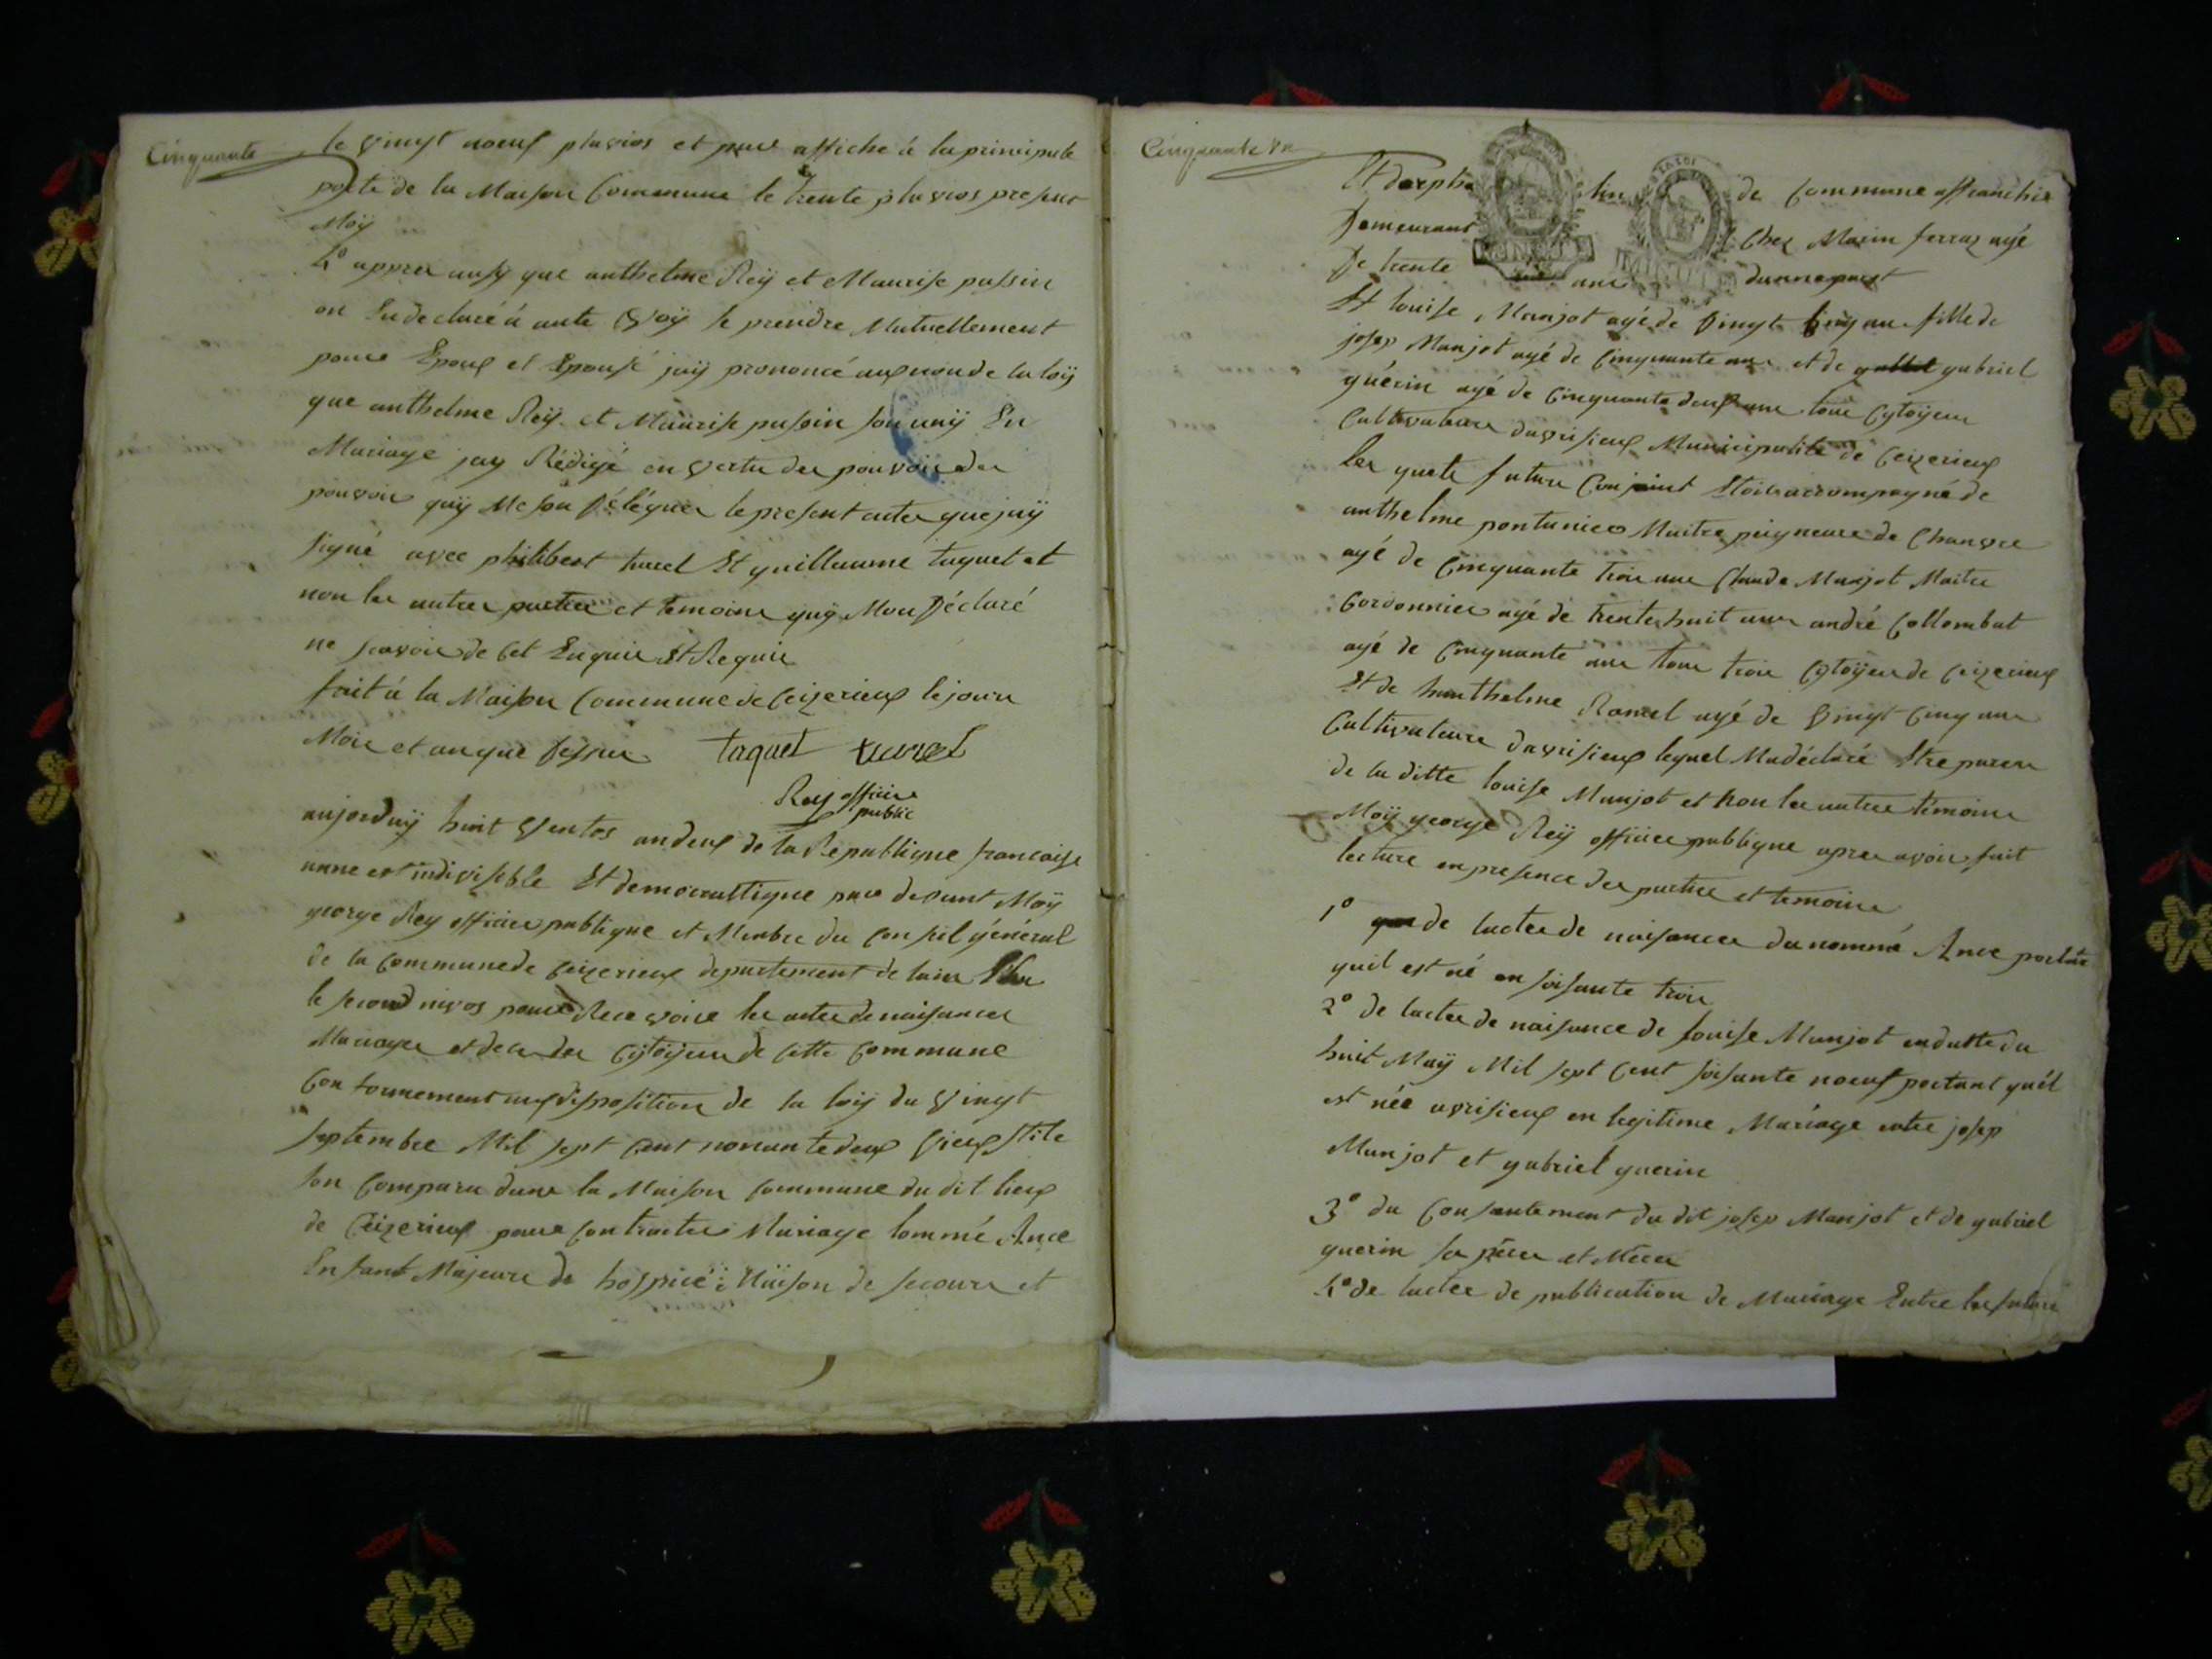 Cinquante
le vingt noeuf pluvios et pour affiche à la principale
porte de la Maison Commune le trente pluvios present
Moÿ
4° apprer aussy que anthelme Reÿ et Maurise passin
on Eu declaré à aute voÿ se prendre Mutuellement
pour Epoux et Epousé jaÿ prononcé aux nom de la loÿ
que anthelme Reÿ et Maurise passin son unÿ En
Mariage jay Rédigé en vertu der pouvoir der
pouvoir quÿ Me son Déléguer le present acter que jaÿ
signé avec philibert turel Et guillaume taquet et
non ler autrer partier et temoins quÿ Mon Déclaré
ne scavoir de cet Enquir Et Requir
fait à la Maison Commune de Ceizerieux le jour
Mois et an que dessus taquet turel
Rey officier
public
aujorduÿ huit ventos an deux de la Republique francaise
unne est indivisible Et democrattique par devant Moÿ
george Rey officier publique et Membre du Conseil général
de la Commune de Ceizerieux departement de lain Elu
le second nivos pour Recevoir ler acter de naisancer
Mariager et decer der Cÿtoÿens de cette Commune
Conformement aux disposition de la loÿ du vingt
septembre Mil sept cent nonante deux vieux stile
son Comparu dans la Maison Commune du dit lieux
de Ceizerieux pour Contracter Mariage lommé Ance
Enfant Majeure de hospice Maison de secour et
Cinquante un
Et dorphe lin de Commune affranchie
Demeurant Chez Marin ferraz agé
De trente ans dunne part
Et louise Manjot agé de vingt cinq an fille de
josep Manjot agé de Cinquante ans et de gabriel
guérin agé de Cinquante deux ans tous Cytoÿen
Cultivateur davrisieux Municipalité de Ceizerieux
ler quels futur Conjoint Etoit accompagné de
anthelme pontanier Maitre peigneure de Chanvre
agé de Cinquante trois ans Claude Manjot Maitre
Cordonnier agé de trente huit ans andré Collombat
agé de Cinquante ans tous trois Cytoÿen de Ceizerieux
Et de hanthelme Ramel agé de vingt cinq ans
Cultivateur davrisieux lequel Madéclaré Etre parens
de la ditte louise Manjot et non ler autrer témoins
Moÿ george Reÿ officier publique apres avoir fait
lecture en presence der partier et temoins
1° de lacter de naisancer du nommé Ance portant
quil est né en soisante trois
2° de lacter de naisance de louise Manjot en datte du
huit Maÿ Mil sept Cent soisante noeuf portant quél
est née avrisieux en legitime Mariage entre josep
Manjot et gabriel guerin
3° du Consantement du dit josep Manjot et de gabriel
guerin ser péres et Méres
4° de lacter de publication de Mariage Entre ler futur